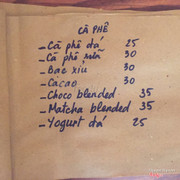 CÀ PHÊ
- Cà phê đá 25
- Cà phê sữa 30
- Bạc xỉu 30
- Cacao 30
- Choco blended 35
- Matcha blended 35
- Yogurt đá 25